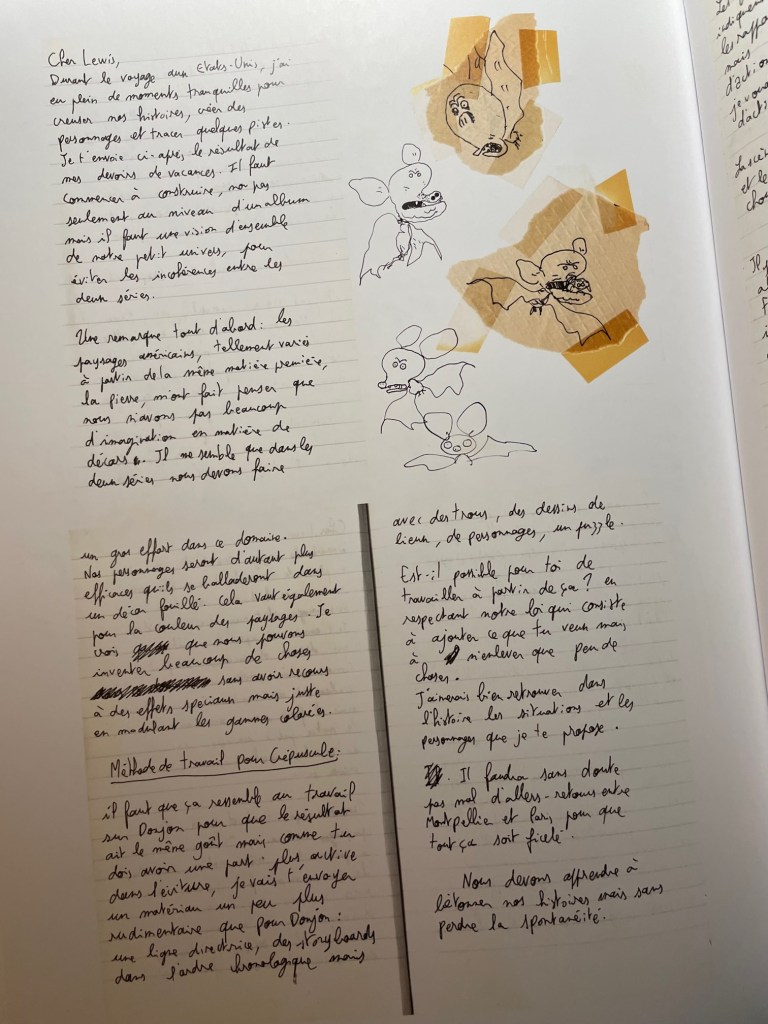 Cher Lewis,
Durant le voyage aux Etats-Unis, j'ai
eu plein de moments tranquilles pour
creuser nos histoires, créer des
personnages et tracer quelques pistes.
Je t'envoie ci-après le résultat de
mes devoirs de vacances. Il faut
commencer à construire, non pas
seulement au niveau d'un album
mais il faut une vision d'ensemble
de notre petit univers, pour
éviter les incohérences entre les
deux séries.
Une remarque tout d'abord : les
paysages américains, tellement variés
à partir de la même matière première,
la pierre, m'ont fait penser que
nous n'avons pas beaucoup
d'imagination en matière de
décors. Il me semble que dans les
deux séries nous devons faire
un gros effort dans ce domaine.
Nos personnages seront d'autant plus
efficaces qu'ils se balladeront dans
un décor fouillé. Cela vaut également
pour la couleur des paysages. Je
crois que nous pouvons
inventer beaucoup de choses
sans avoir recours
à des effets spéciaux mais juste
en modulant les gammes colorées.
Méthode de travail pour Crépuscule :
il faut que ça ressemble au travail
sur Donjon pour que le résultat
ait le même goût mais comme tu
dois avoir une part plus active
dans l'écriture, je vais t'envoyer
un matériau un peu plus
rudimentaire que pour Donjon :
une ligne directrice, des storyboards
dans l'ordre chronologique mais
avec des trous, des dessins de
lieux, de personnages, un puzzle.
Est-il possible pour toi de
travailler à partir de ça ? en
respectant notre loi qui consiste
à ajouter ce que tu veux mais
à n'enlever que peu de
choses.
J'aimerais bien retrouver dans
l'histoire les situations et les
personnages que je te propose.
Il faudra sans doute
pas mal d'allers-retours entre
Montpellier et Paris pour que
tout ça soit ficelé.
Nous devons apprendre à
bétonner nos histoires mais sans
perdre la spontanéité.
indiquent
mais
d'action
je vou
d'acti
La scèn
et le
cho